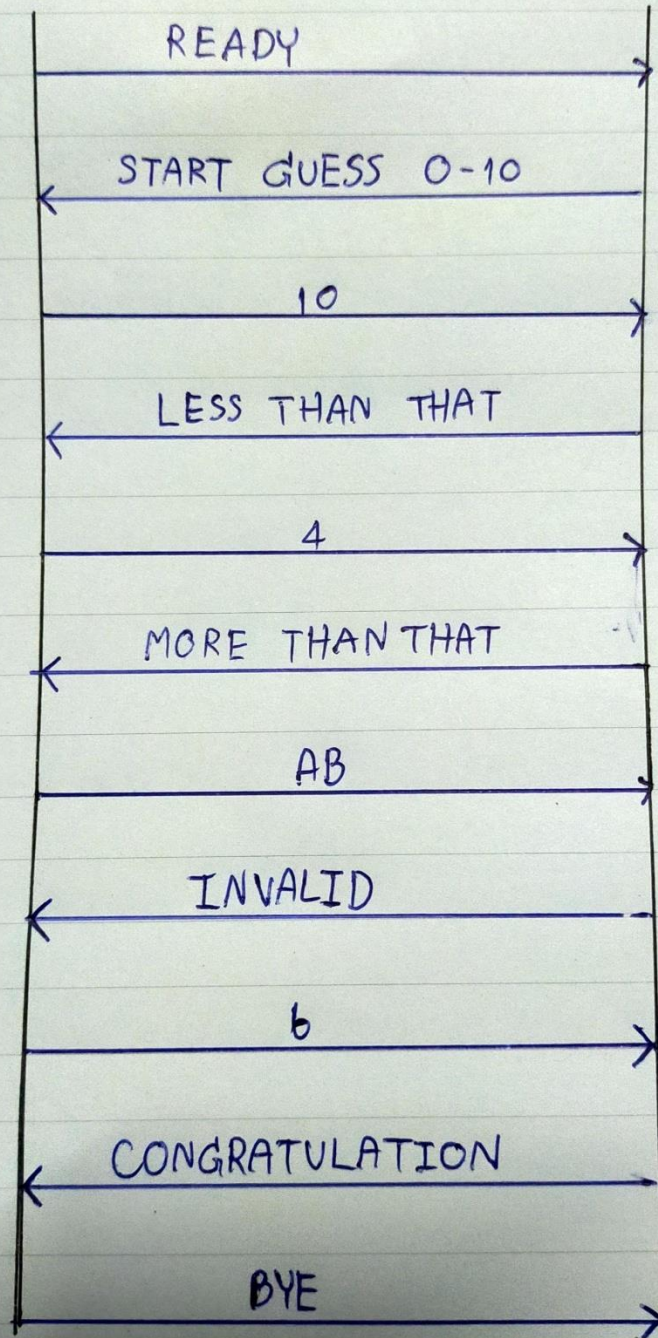 READY
START GUESS 0-10
10
LESS THAN THAT
4
MORE THAN THAT
AB
INVALID
6
CONGRATULATION
BYE